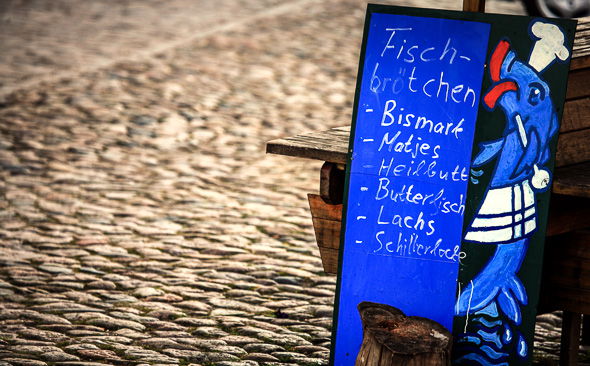 Fisch-
brötchen
- Bismark
- Matjes
- Heilbutt
- Butterfisch
- Lachs
- Schillerlocke